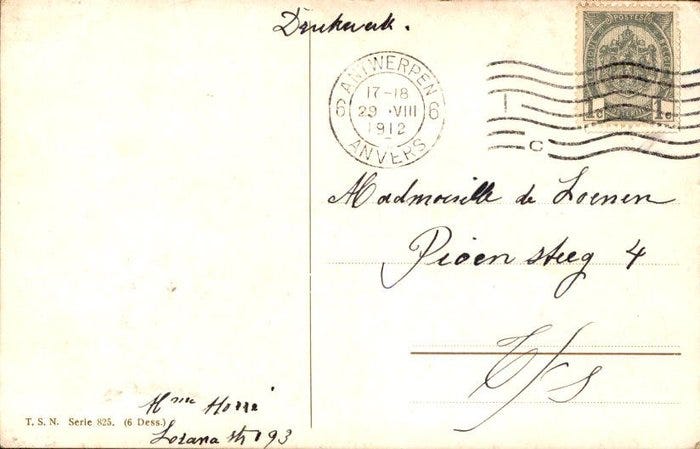 Drukwerk.
ANTWERPEN
6 6
17-18
29 VIII
1912
ANVERS
POSTES
1c 1c
C
Madmoiselle de Loenen
Pioen steeg 4
E/S
T. S. N. Serie 825. (6 Dess.)
Mme
Lozana str 93